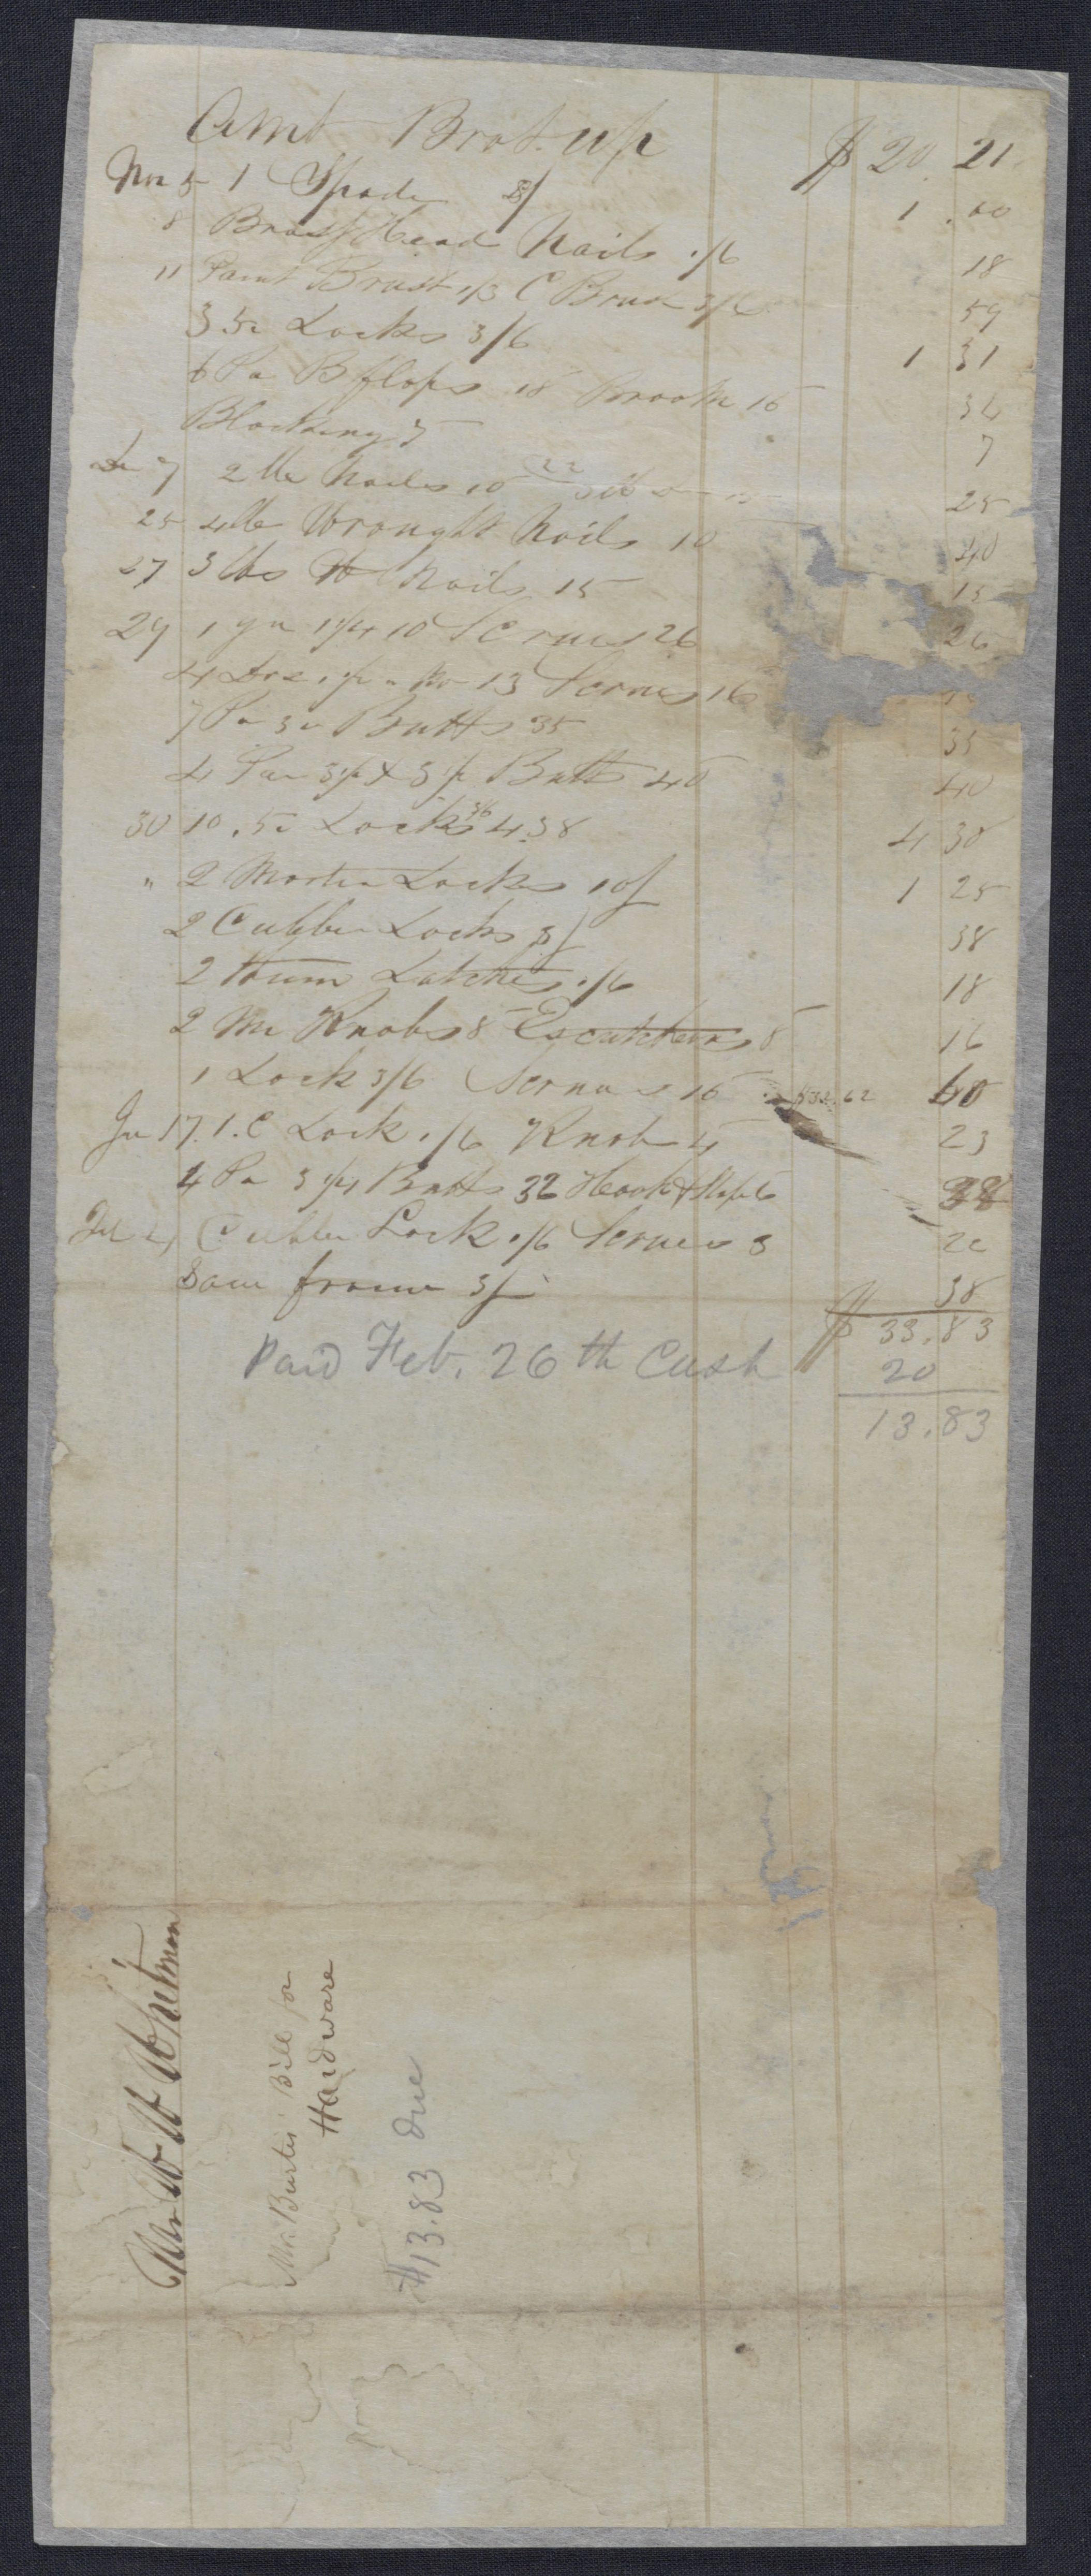 Amt Brot. up $ 20. 21
Nov 5 1 Spade 8/ 1.00
8 Brass Head Nails 1/6 18
11 Paint Brush 1/3 C Brush 3/6 59
3 5in Locks 3/6 1 31
6 Pa B flaps 18 Broom 16 34
Blacking 7 7
De 7 2 lb Nails 10 25
25 4lb Wrought Nails 10 40
27 3 lbs Nails 15 15
29 1 1/4 10 Screws 26 26
4 Doz No 13 Screws 16
7 Pa 3in Butts 35 35
4 Pair 3½ x 3½ Butts 40 40
30 10 .5in Locks 3/6 4.38 4 38
" 2 Mortice Locks 10/ 1 25
2 Cubber Locks 3/ 38
2 Thum Latches 1/6 18
2 Knobs 8 Escutcheons 8 16
1 Lock 3/6 Screws 16 $32.62 60
Ja 17. 1. C Lock 1/6 Knob 5 23
4 Pa 3 Butts 32 Hook & Staple 6 38
Cubber Lock 1/6 Screws 3
Saw frame 3/ 38
$ 33.83
Paid Feb. 26th Cash 20
13.83
Mr W Whitman
Mr. Burtis' Bill for
Hardware
$13.83 due